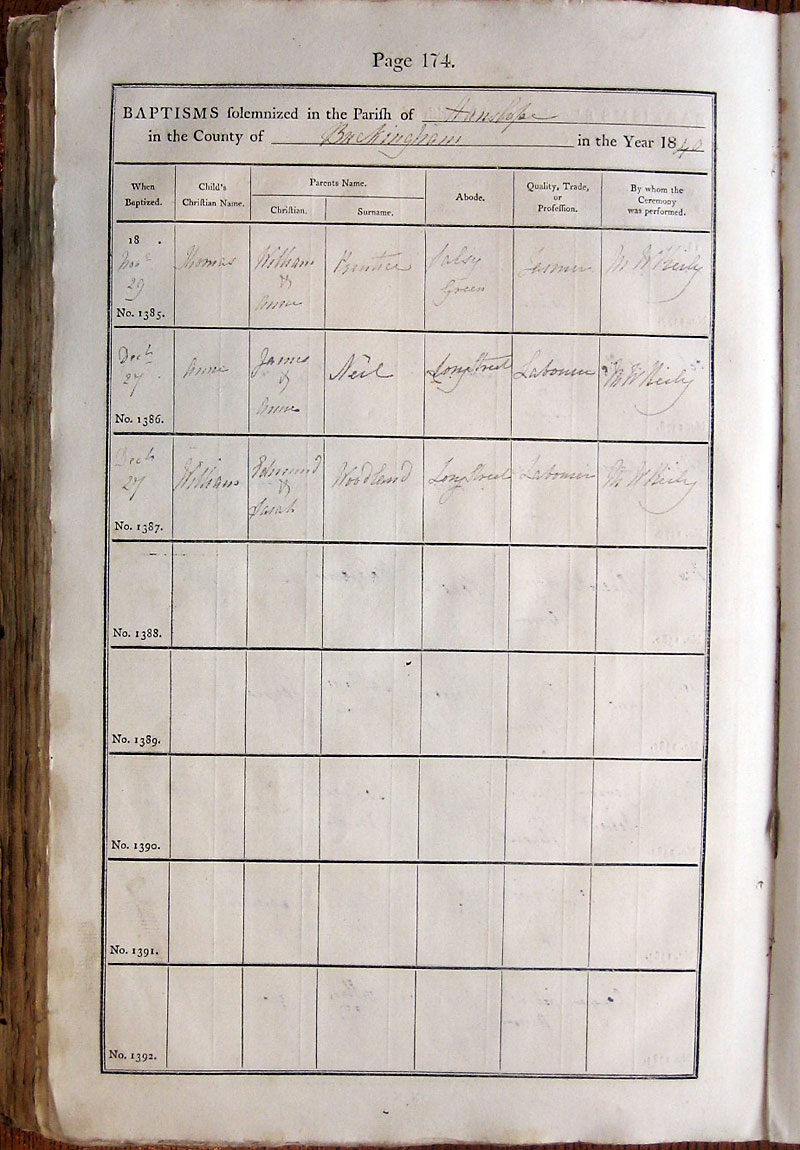 Page 174.
BAPTISMS ſolemnized in the Pariſh of Hanslope
in the County of Buckingham in the Year 1840
When Baptized.
Child's Chriſtian Name.
Parents Name.
Chriſtian.
Surname.
Abode.
Quality, Trade, or Profeſſion.
By whom the Ceremony was performed.
18 .
Novr Thomas William Prentice Green
29 &
Anne
No. 1385.
Decr Anne James Neil Longstreet Labourer
27 &
Anne
No. 1386.
Decr William Edmund Woodland Longstreet Labourer
27 &
Sarah
No. 1387.
No. 1388.
No. 1389.
No. 1390.
No. 1391.
No. 1392.